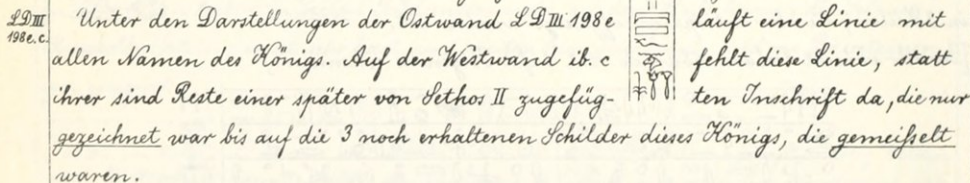 LD III 198e.c.
Unter den Darstellungen der Ostwand LD III 198e läuft eine Linie mit
allen Namen des Königs. Auf der Westwand ib. c fehlt diese Linie, statt
ihrer sind Reste einer später von Sethos II zugefüg- ten Inschrift da, die nur
gezeichnet war bis auf die 3 noch erhaltenen Schilder dieses Königs, die gemeißelt
waren.